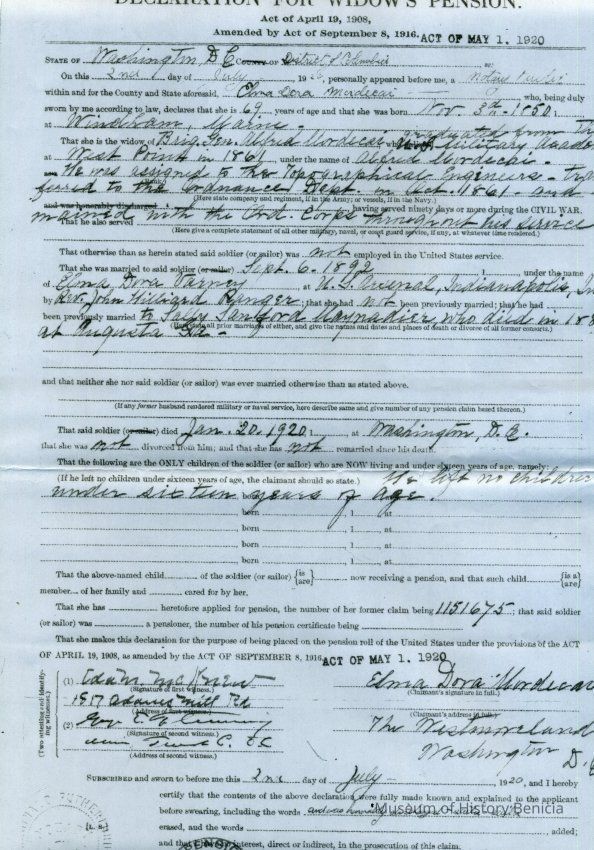 DECLARATION FOR WIDOW'S PENSION.
Act of April 19, 1908,
Amended by Act of September 8, 1916. ACT OF MAY 1, 1920
STATE OF Washington D C COUNTY OF District of Columbia ss:
On this 2nd day of July 1920, personally appeared before me, a Notary Public
within and for the County and State aforesaid, Elma Dora Mordecai who, being duly
sworn by me according to law, declares that she is 69 years of age and that she was born Nov. 30th 1850
at Windham, Maine.
That she is the widow of Brig. Gen. Alfred Mordecai who graduated from
at West Point in 1861 under the name of Alfred Mordecai.
He was assigned to the Topographical Engineers - tran
ferred to the Ordnance Dept. in Oct. 1861 and
(Here state company and regiment, if in the Army; or vessels, if in the Navy.)
and was honorably discharged having served ninety days or more during the CIVIL WAR.
mained with the Ord. Corps throughout his service
That he also served
(Here give a complete statement of all other military, naval, or coast guard service, if any, at whatever time rendered.)
That otherwise than as herein stated said soldier (or sailor) was not employed in the United States service.
That she was married to said soldier (or sailor) Sept. 6. 1892 1 , under the name
of Elma Dora Varney, at U.S. Arsenal, Indianapolis, In
by Rev. John Hilliard Ranger; that she had not been previously married; that he had
been previously married to Sally Sanford Maynadier, who died in 188
(Here state all prior marriages of either, and give the names and dates and places of death or divorce of all former consorts.)
at Augusta Ga -
and that neither she nor said soldier (or sailor) was ever married otherwise than as stated above.
(If any former husband rendered military or naval service, here describe same and give number of any pension claim based thereon.)
That said soldier (or sailor) died Jan. 20. 1920 1 , at Washington, D.C.
that she was not divorced from him; and that she has not remarried since his death.
That the following are the ONLY children of the soldier (or sailor) who are NOW living and under sixteen years of age, namely:
(If he left no children under sixteen years of age, the claimant should so state.) He left no children
under sixteen years of age.
born 1 , at
born , 1 , at
born , 1 , at
born , 1 , at
born , 1 , at
That the above-named child of the soldier (or sailor) {is are} now receiving a pension, and that such child {is a are}
member of her family and cared for by her.
That she has heretofore applied for pension, the number of her former claim being 1151675; that said soldier
(or sailor) was a pensioner, the number of his pension certificate being
That she makes this declaration for the purpose of being placed on the pension roll of the United States under the provisions of the ACT
OF APRIL 19, 1908, as amended by the ACT OF SEPTEMBER 8, 1916, ACT OF MAY 1, 1920
(Two attesting and identifying witnesses.)
(1) McKnew
(Signature of first witness.)
1817 Adams Mill Rd
(Address of first witness.)
(2)
(Signature of second witness.)
(Address of second witness.)
Elma Dora Mordecai
(Claimant's signature in full.)
The Westmoreland
(Claimant's address in full.)
Washington D.C
SUBSCRIBED and sworn to before me this 2nd day of July, 1920, and I hereby
certify that the contents of the above declaration were fully made known and explained to the applicant
before swearing, including the words
erased, and the words added;
and that I have no interest, direct or indirect, in the prosecution of this claim.
[L. S.]
Museum of History Benicia